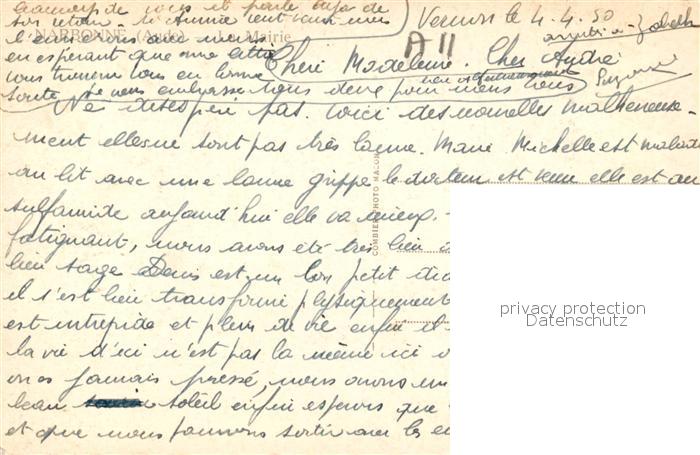 beaucoup de vous et parle déjà de
son retour. si Annie veut vous nous
l'enverrons avec
NARBONNE (Aude) — La Mairie
en espérant que ma lettre
vous trouvera tous en bonne
santé je vous embrasse tous deux pour nous tous
Suzanne
Vernon le 4.4.50
A 11
Chère Madeleine. Cher André
Ne désespère pas. voici des nouvelles malheureuse-
ment elles ne sont pas très bonne. Marie Michelle est malade
au lit avec une bonne grippe le docteur est venu elle est au
sulfamide aujourd'hui elle va mieux.
fatiguant, nous avons été très bien
bien sage Denis est un bon petit
il s'est bien transformé physiquement
est intrépide et plein de vie enfin il
la vie d'ici n'est pas la même ici
on es jamais pressé, nous avons un
beau soleil enfin espérons que
et que nous pouvons sortir avec les
COMBIER PHOTO MACON
privacy protection
Datenschutz